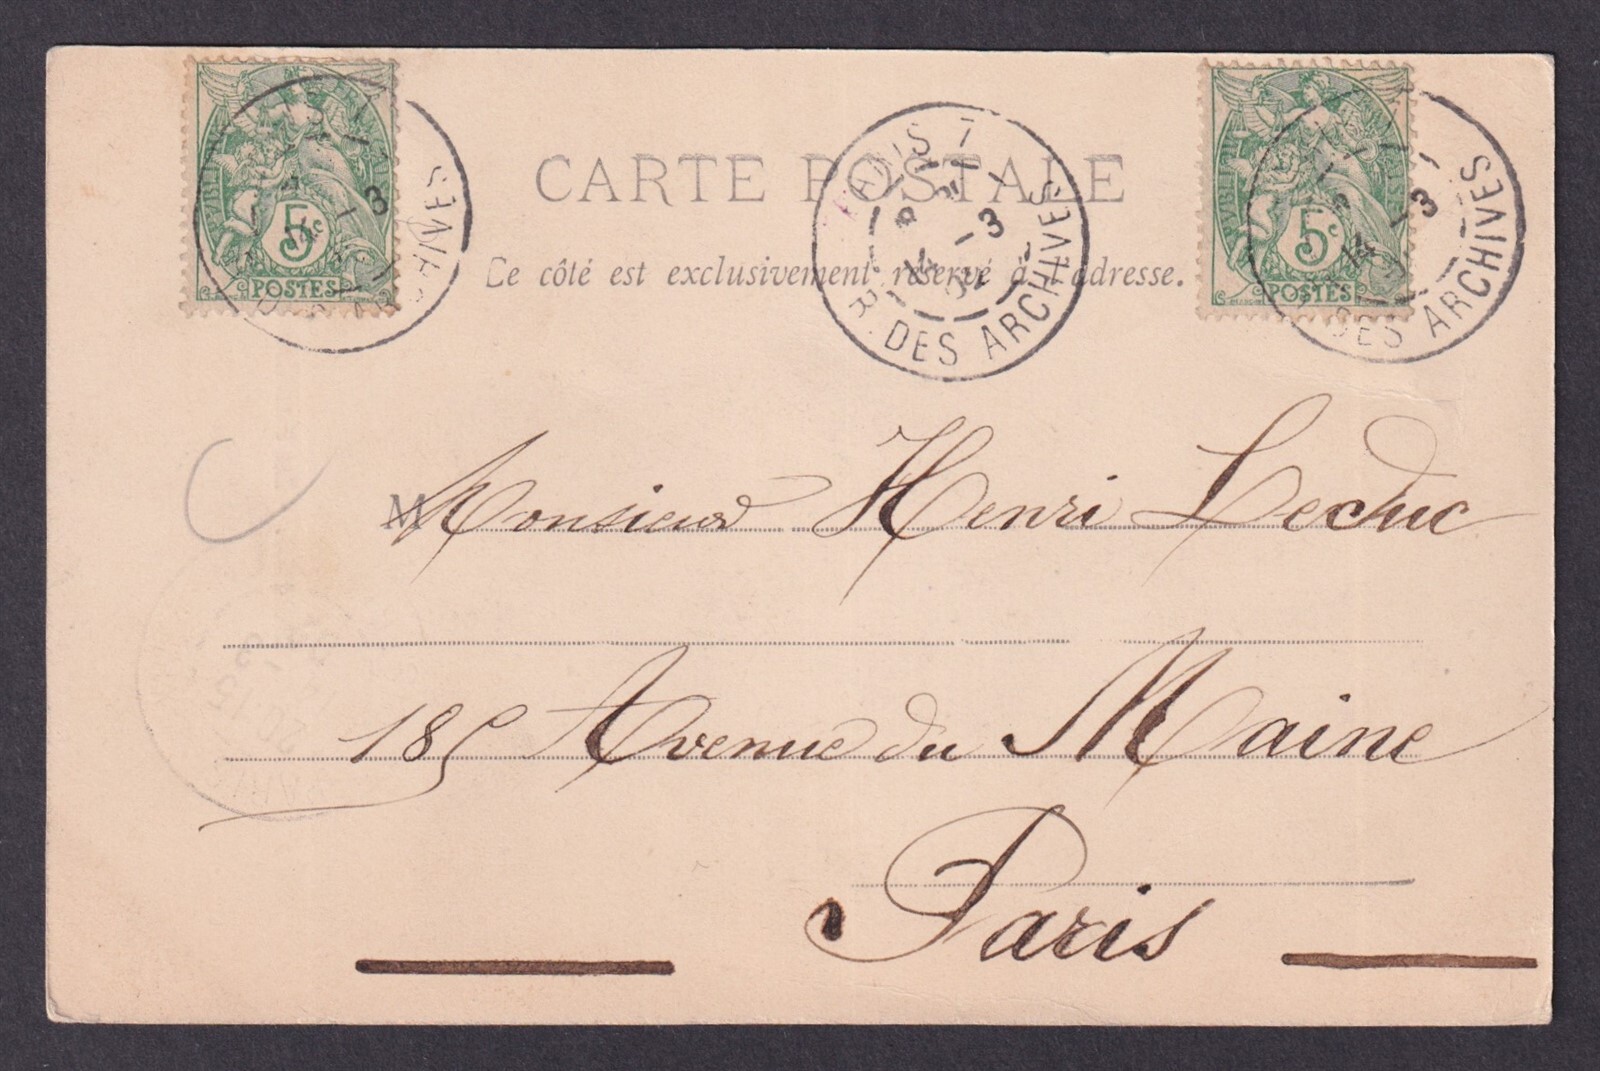 CARTE POSTALE
Ce côté est exclusivement réservé à l'adresse.
5c
POSTES
PARIS 7
14 -3
R. DES ARCHIVES
5c
POSTES
14 -3
DES ARCHIVES
M Monsieur Henri Leduc
185 Avenue du Maine
Paris